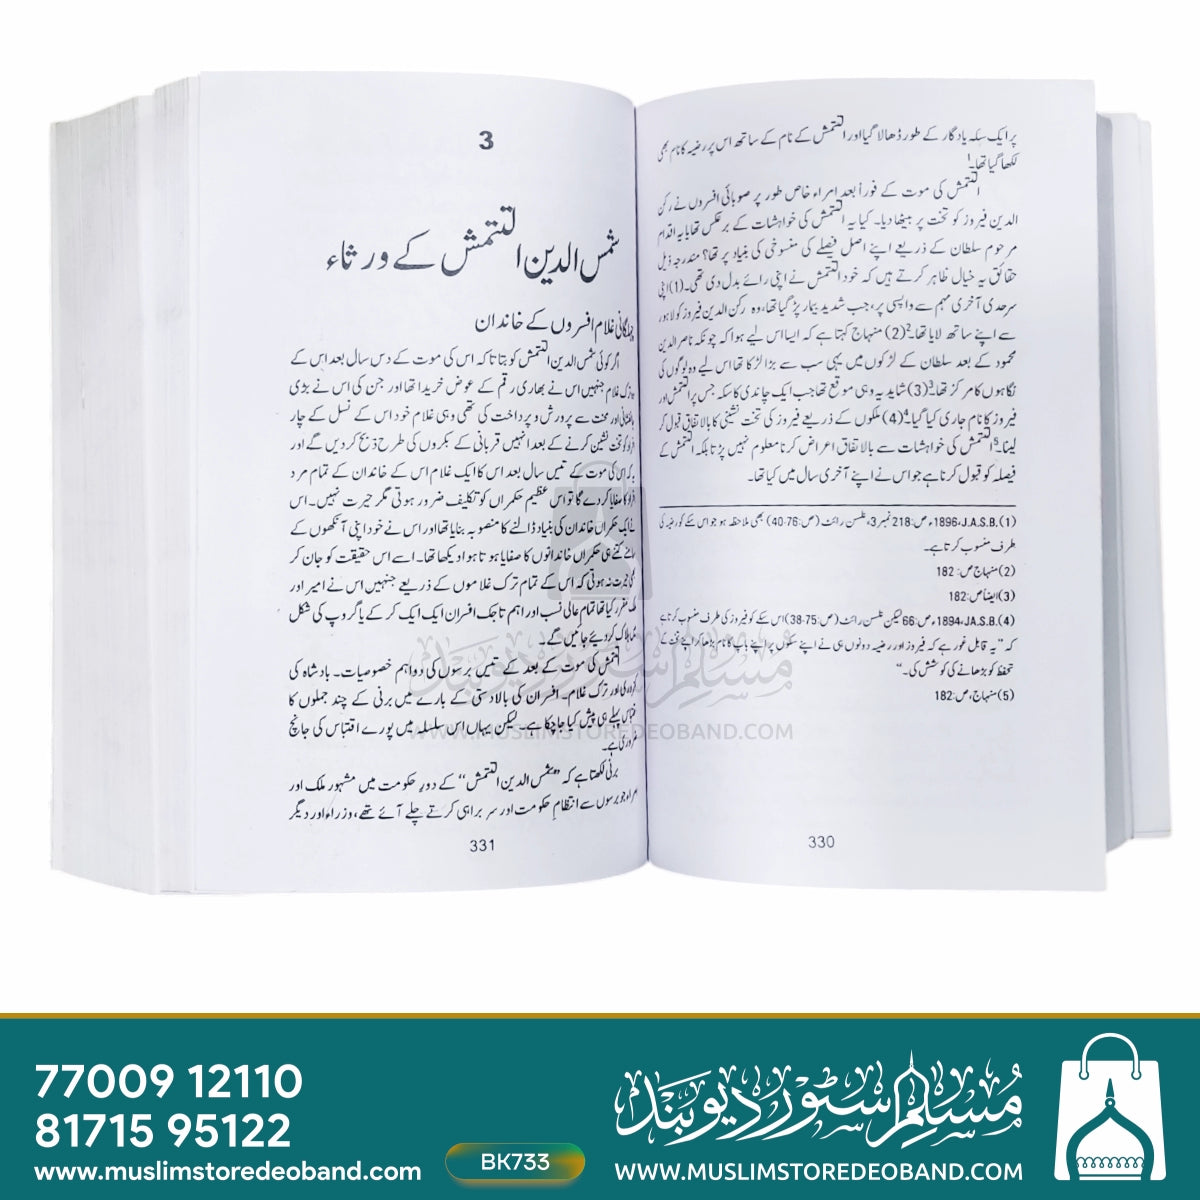 پر ایک سکہ یادگار کے طور ڈھالا گیا اور التتمش کے نام کے ساتھ اس پر رضیہ کا نام بھی
لکھا گیا تھا۔1
التتمش کی موت کے فوراً بعد امراء خاص طور پر صوبائی افسروں نے رکن
الدین فیروز کو تخت پر بیٹھا دیا۔ کیا یہ التتمش کی خواہشات کے برعکس تھا یا یہ اقدام
مرحوم سلطان کے ذریعے اپنے اصل فیصلے کی منسوخی کی بنیاد پر تھا؟ مندرجہ ذیل
حقائق یہ خیال ظاہر کرتے ہیں کہ خود التتمش نے اپنی رائے بدل دی تھی۔(1) اپنی
سرحدی آخری مہم سے واپسی پر، جب شدید بیمار پڑ گیا تھا، وہ رکن الدین فیروز کو لاہور
سے اپنے ساتھ لایا تھا۔2(2) منہاج کہتا ہے کہ ایسا اس لیے ہوا کہ چونکہ ناصر الدین
محمود کے بعد سلطان کے لڑکوں میں یہی سب سے بڑا لڑکا تھا اس لیے وہ لوگوں کی
نگاہوں کا مرکز تھا۔3(3) شاید یہ وہی موقع تھا جب ایک چاندی کا سکہ جس پر التتمش اور
فیروز کا نام جاری کیا گیا۔4(4) ملکوں کے ذریعے فیروز کی تخت نشینی کا بالاتفاق قبول کر
لینا۔5 التتمش کی خواہشات سے بالاتفاق اعراض کرنا معلوم نہیں پڑتا بلکہ التتمش کے
فیصلہ کو قبول کرنا ہے جو اس نے اپنے آخری سال میں کیا تھا۔
(1) J.A.S.B.،1896ء ص:218 نمبر 3، نلسن رائٹ (ص:76-40) بھی ملاحظہ ہو جو اس سکے کو رضیہ کی
طرف منسوب کرتا ہے۔
(2) منہاج ص: 182
(3) ایضاً ص:182
(4) J.A.S.B.،1894ء ص:66 لیکن نلسن رائٹ (ص:75-38) اس سکے کو فیروز کی طرف منسوب کرتا ہے
کہ "یہ قابل غور ہے کہ فیروز اور رضیہ دونوں ہی نے اپنے سکوں پر اپنے باپ کا نام بڑھا کر اپنے تخت کے
تحفظ کو بڑھانے کی کوشش کی۔"
(5) منہاج، ص:182
330
3
شمس الدین التتمش کے ورثاء
چہلگانی غلام افسروں کے خاندان
اگر کوئی شمس الدین التتمش کو بتاتا کہ اس کی موت کے دس سال بعد اس کے
ترک غلام جنہیں اس نے بھاری رقم کے عوض خریدا تھا اور جن کی اس نے بڑی
اور محنت سے پرورش و پرداخت کی تھی وہی غلام خود اس کے نسل کے چار
کو تخت نشین کرنے کے بعد انہیں قربانی کے بکروں کی طرح ذبح کر دیں گے اور
کہ اس کی موت کے تیس سال بعد اس کا ایک غلام اس کے خاندان کے تمام مرد
کا صفایا کر دے گا تو اس عظیم حکمراں کو تکلیف ضرور ہوتی مگر حیرت نہیں۔ اس
نے ایک حکمراں خاندان کی بنیاد ڈالنے کا منصوبہ بنایا تھا اور اس نے خود اپنی آنکھوں کے
سامنے کتنے ہی حکمراں خاندانوں کا صفایا ہوتا ہوا دیکھا تھا۔ اسے اس حقیقت کو جان کر
حیرت نہ ہوتی کہ اس کے تمام ترک غلاموں کے ذریعے جنہیں اس نے امیر اور
ملک مقرر کیا تھا تمام عالی نسب اور اہم تاجک افسران ایک ایک کر کے یا گروپ کی شکل
ہلاک کر دیئے جائیں گے۔
التتمش کی موت کے بعد کے تیس برسوں کی دو اہم خصوصیات۔ بادشاہ کی
کمزوری اور ترک غلام۔ افسران کی بالادستی کے بارے میں برنی کے چند جملوں کا
اقتباس پہلے ہی پیش کیا جا چکا ہے۔ لیکن یہاں اس سلسلہ میں پورے اقتباس کی جانچ
ضروری ہے۔
برنی لکھتا ہے کہ "شمس الدین التتمش" کے دور حکومت میں مشہور ملک اور
امراء جو برسوں سے انتظام حکومت اور سربراہی کرتے چلے آئے تھے، وزراء اور دیگر
331
مسلم سٹور دیوبند
WWW.MUSLIMSTOREDEOBAND.COM
77009 12110
81715 95122
www.muslimstoredeoband.com
BK733
مسلم سٹور دیوبند
WWW.MUSLIMSTOREDEOBAND.COM